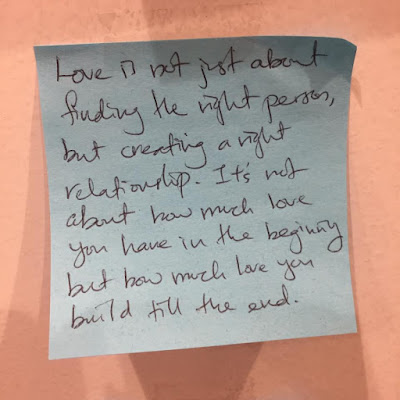 Love is not just about
finding the right person,
but creating a right
relationship. It's not
about how much love
you have in the beginning
but how much love you
build till the end.